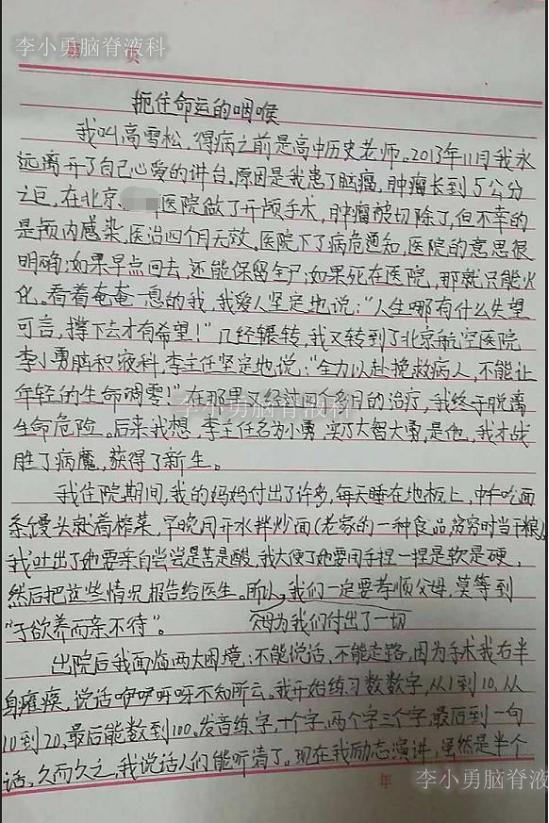 李小勇脑脊液科
页
扼住命运的咽喉
我叫高雪松，得病之前是高中历史老师。2013年11月我永
远离开了自己心爱的讲台，原因是我患了脑瘤，肿瘤长到5公分
之巨，在北京 医院做了开颅手术，肿瘤被切除了，但不幸的
是颅内感染，医治四个月无效，医院下了病危通知，医院的意思很
明确：如果早点回去，还能保留全尸；如果死在医院，那就只能火
化。看着奄奄一息的我，我爱人坚定地说：“人生哪有什么失望
可言，撑下去才有希望！”几经辗转，我又转到了北京航空医院
李小勇脑积液科，李主任坚定地说：“全力以赴挽救病人，不能让
年轻的生命凋零！”在那里又经过四个多月的治疗，我终于脱离
生命危险。后来我想，李主任名为小勇，实乃大智大勇，是他，我才战
胜了病魔，获得了新生。
李小勇脑脊液科
我住院期间，我的妈妈付出了许多，每天睡在地板上，中午吃面
条馒头就着榨菜，早晚用开水拌炒面（老家的一种食品，贫穷时当干粮）。
我吐出了她要亲自尝尝是苦是酸，我大便了她要用手捏一捏是软是硬，
然后把这些情况报告给医生。所以，我们一定要孝顺父母，莫等到
“子欲养而亲不待”。
父母为我们付出了一切
出院后我面临两大困境：不能说话，不能走路，因为手术我右半
身瘫痪，说话咿咿呀呀不知所云。我开始练习数数字，从1到10，从
10到20，最后能数到100。发音练字，一个字，两个字三个字，最后到一句
话，久而久之，我说话人们能听清了。现在我励志演讲，虽然是半个
年
李小勇脑脊液